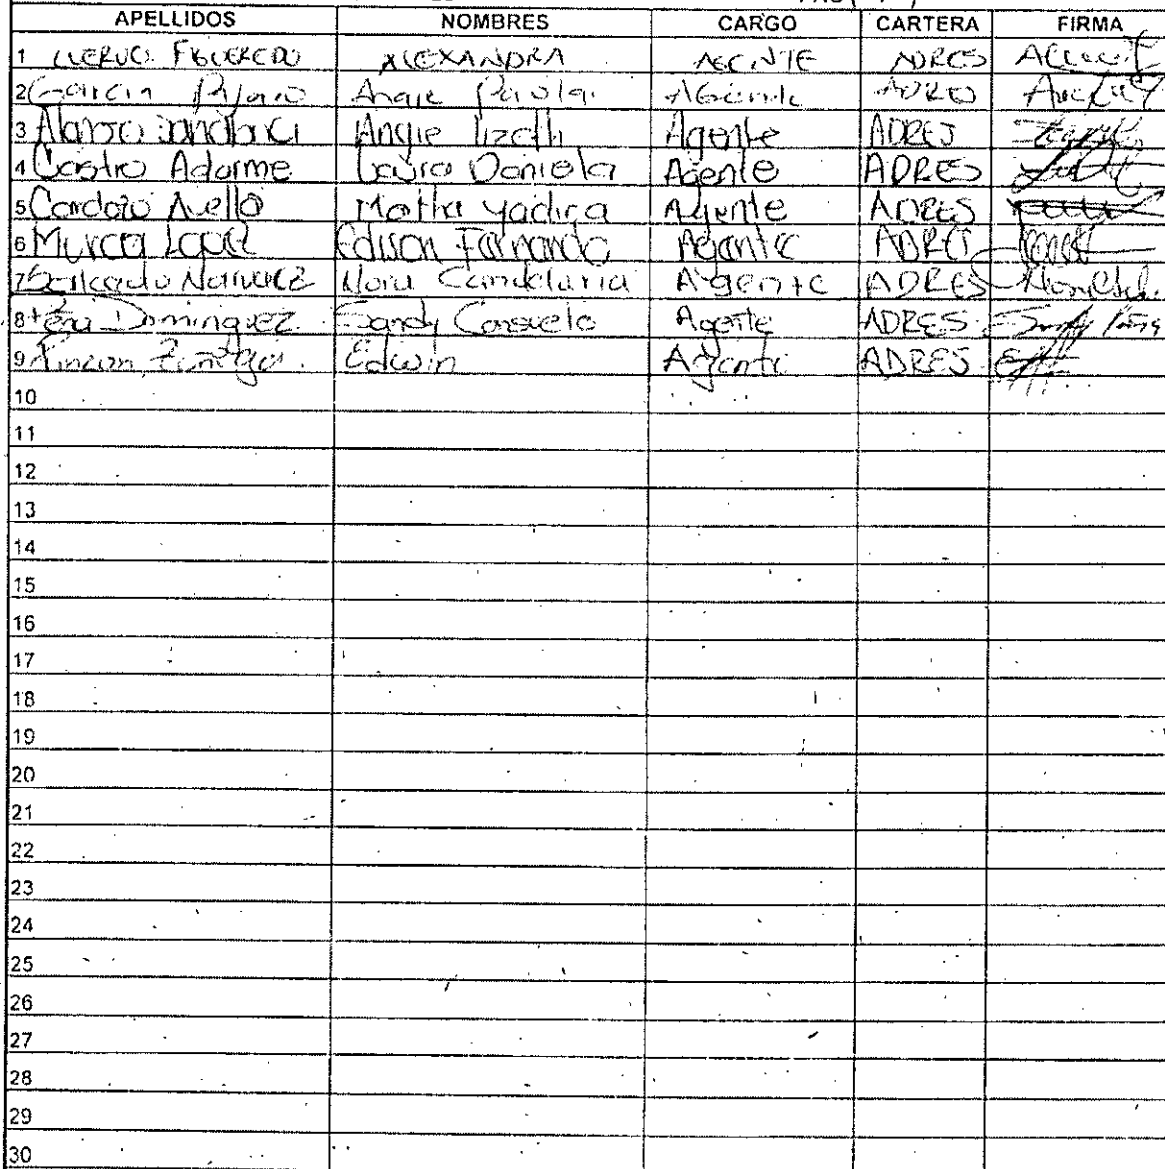 APELLIDOS NOMBRES CARGO CARTERA FIRMA
1 CUERVO FIGUEREDO ALEXANDRA AGENTE ADRES
2 Garcia Angie Paola Agente ADRES
3 Alonso Angie lizeth Agente ADRES
4 Castro Adarme Laura Daniela Agente ADRES
5 Cardozo Avello Martha yadira Agente ADRES
6 Murcia Lopez Edison Fernando Agente ADRES
7 Narvaez Nora Candelaria Agente ADRES
8 Peña Dominguez Sandy Consuelo Agente ADRES Sandy Peña
9 Rincon Edwin Agente ADRES
10
11
12
13
14
15
16
17
18
19
20
21
22
23
24
25
26
27
28
29
30